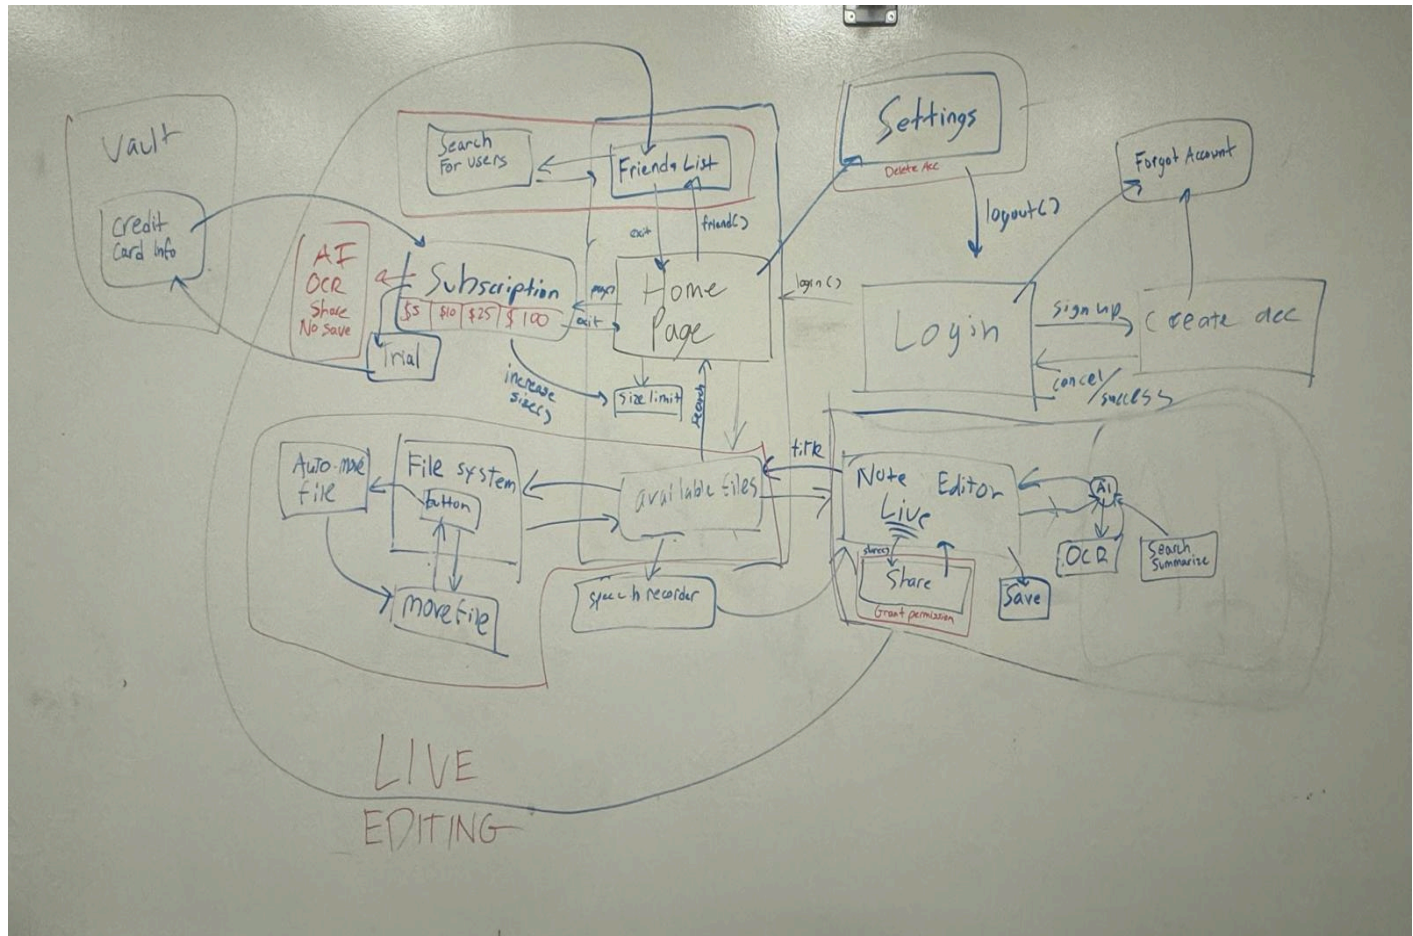 Vault
Credit
Card Info
Search
For users
Friends List
exit
friend()
Settings
Delete Acc
logout()
Forgot Account
AI
OCR
Share
No save
Subscription
$5 $10 $25 $100
Trial
exit
Home
Page
login()
Login
sign up
Create acc
cancel/
success
increase
size()
size limit
search
Auto-move
file
File system
button
move file
available files
speech recorder
title
Note Editor
Live
share()
Share
Grant permission
Save
AI
OCR
Search
Summarize
LIVE
EDITING